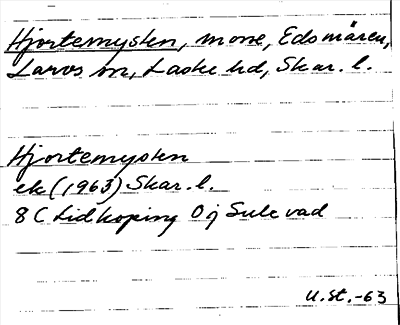 Hjortemysten, mosse, Edsmären,
Larvs sn, Laske hd, Skar. l.
Hjortemysten
ek (1963) Skar. l.
8 C Lidköping Öj Sulevad
U. St. -63